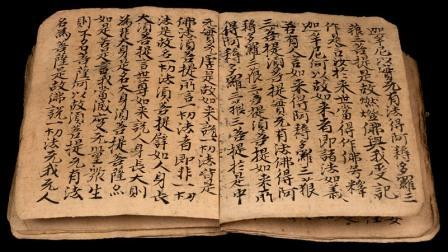 迦牟尼以實无有法得阿耨多羅三
藐三菩提是故燃燈佛與我受記
作是言汝於來世當得作佛号釋
迦牟尼何以故如來者即諸法如義
若有人言如來得阿耨多羅三藐
三菩提須菩提實无有法佛得阿
耨多羅三藐三菩提須菩提如來所
得阿耨多羅三藐三菩提於是中
无實无虛是故如來說一切法皆是
佛法須菩提所言一切法者即非一切
法是故名一切法須菩提辟如人身長
大須菩提言世尊如來說人身長大則
為非大身是名大身須菩提菩薩亦
如是若作是言我當滅度无量眾生
則不名菩薩何以故須菩提无有法
名為菩薩是故佛說一切法无我无人